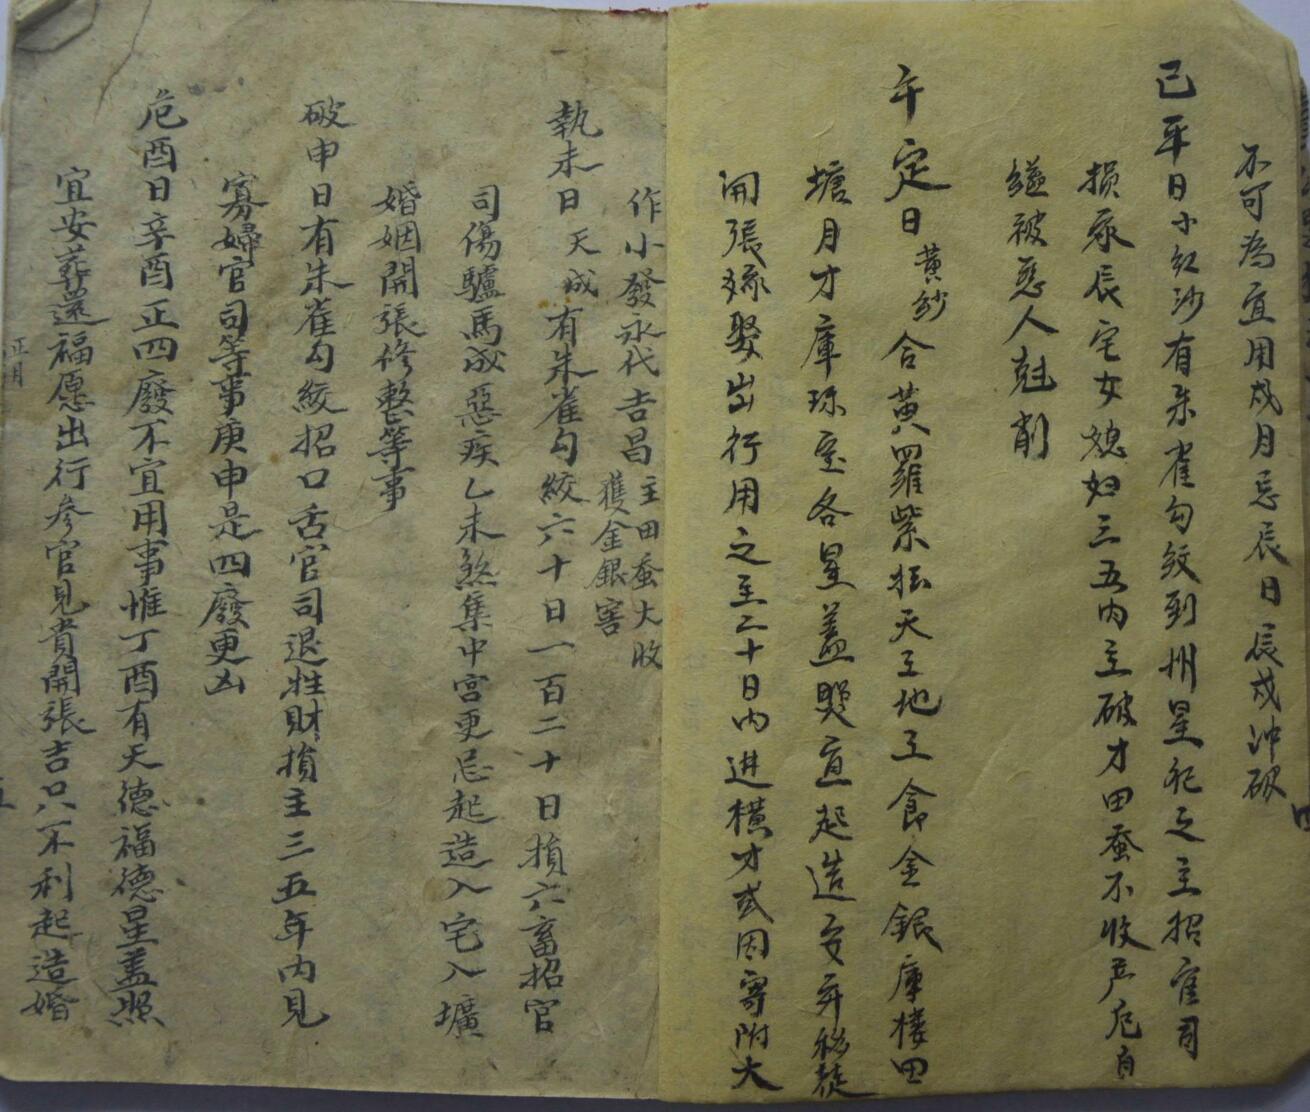 不可為宜用戍月忌辰日辰戍冲破
已平日小紅沙有朱雀勾绞到州星犯之主招官司
損家長宅女媳妇三五内主破才田蚕不收产厄自
缢被惡人尅削
午定日黄紗合黄羅紫檀天王地王食金銀庫樓田
塘月才庫珠宝各星蓋照宜起造安葬移徙
開張嫁娶出行用之主二十日内進横才或因寄附大
作小發永代吉昌主田蚕大收
獲金銀窖
執未日天成有朱雀勾絞六十日一百二十日損六畜招官
司傷驢馬成惡疾乙未煞集中宮更忌起造入宅入壙
婚姻開張修整等事
破申日有朱雀勾絞招口舌官司退牲財損主三五年内見
寡婦官司等事庚申是四廢更凶
危酉日辛酉正四廢不宜用事惟丁酉有天德福德星蓋照
宜安葬還福愿出行參官見貴開張吉只不利起造婚
正月